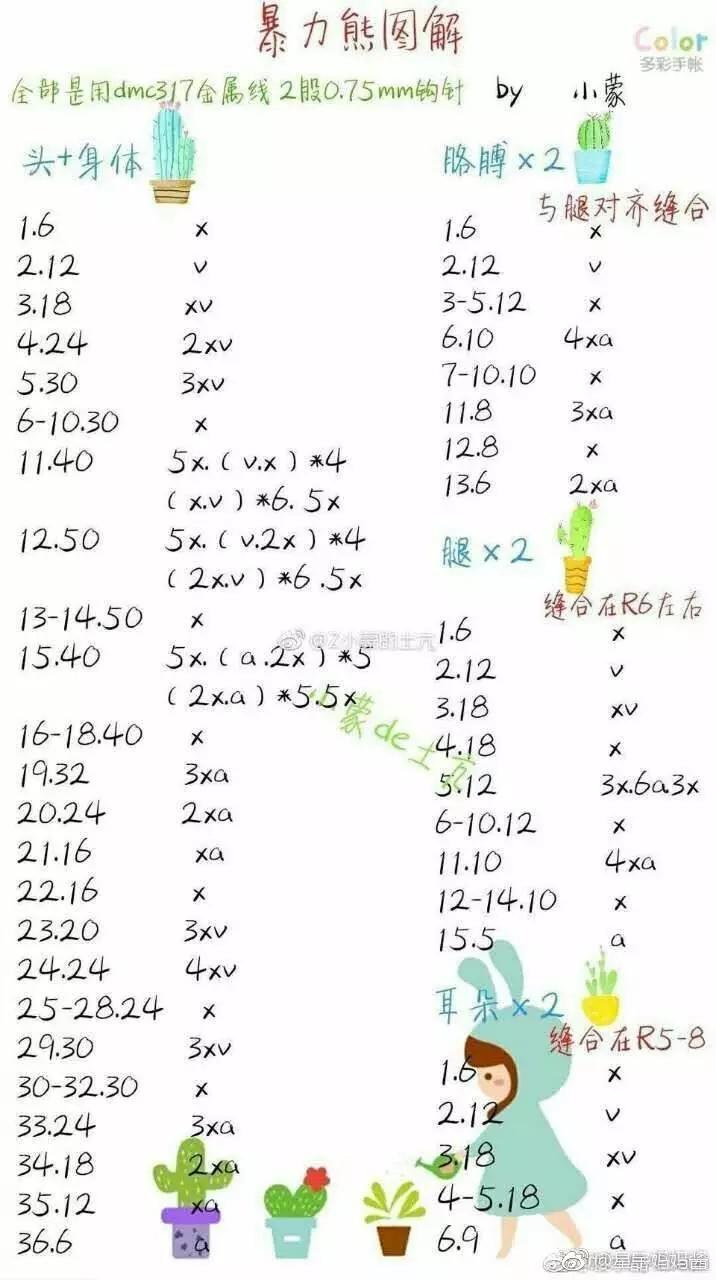 暴力熊图解
Color
多彩手帐
全部是用dmc317金属线2股0.75mm钩针 by 小蒙
头+身体
1.6 x
2.12 v
3.18 xv
4.24 2xv
5.30 3xv
6-10.30 x
11.40 5x.(v.x)*4
(x.v)*6.5x
12.50 5x.(v.2x)*4
(2x.v)*6.5x
13-14.50 x
15.40 5x.(a.2x)*5
(2x.a)*5.5x
16-18.40 x
19.32 3xa
20.24 2xa
21.16 xa
22.16 x
23.20 3xv
24.24 4xv
25-28.24 x
29.30 3xv
30-32.30 x
33.24 3xa
34.18 2xa
35.12 xa
36.6 a
胳膊×2
与腿对齐缝合
1.6 x
2.12 v
3-5.12 x
6.10 4xa
7-10.10 x
11.8 3xa
12.8 x
13.6 2xa
腿×2
缝合在R6左右
1.6 x
2.12 v
3.18 xv
4.18 x
5.12 3x.6a.3x
6-10.12 x
11.10 4xa
12-14.10 x
15.5 a
耳朵×2
缝合在R5-8
1.6 x
2.12 v
3.18 xv
4-5.18 x
6.9 a
小蒙de土亢
妈妈酱